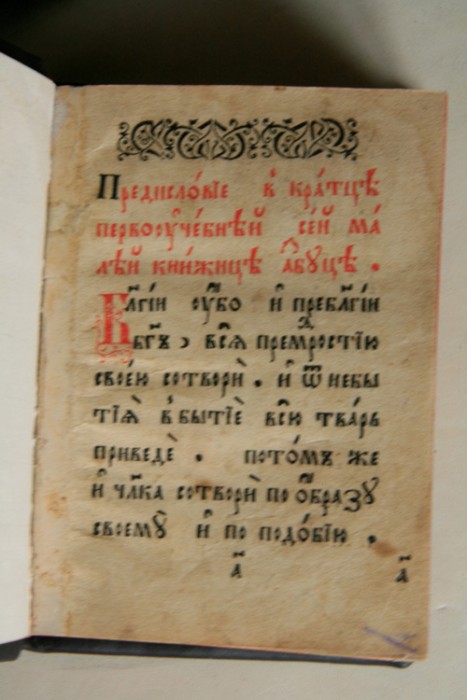 Предисло́вїе в кра́тцѣ
первоꙋче́бнѣй се́й ма́
лѣй кни́жицѣ а҆́збꙋцѣ .
Бл҃гі́и ᲂу҆́бо и҆ пребл҃гі́и
бг҃ъ, всѧ̑ премⷣростїю
свое́ю сотворѝ . и҆ ѿ небы
тїѧ̀ в бытїѐ всю̀ тва́рь
приведѐ . пото́мъ же
и҆ чл҃ка сотворѝ по ѻ҆́бразꙋ
своемꙋ̀ и҆ по подо́бїю .
а҃ а҃